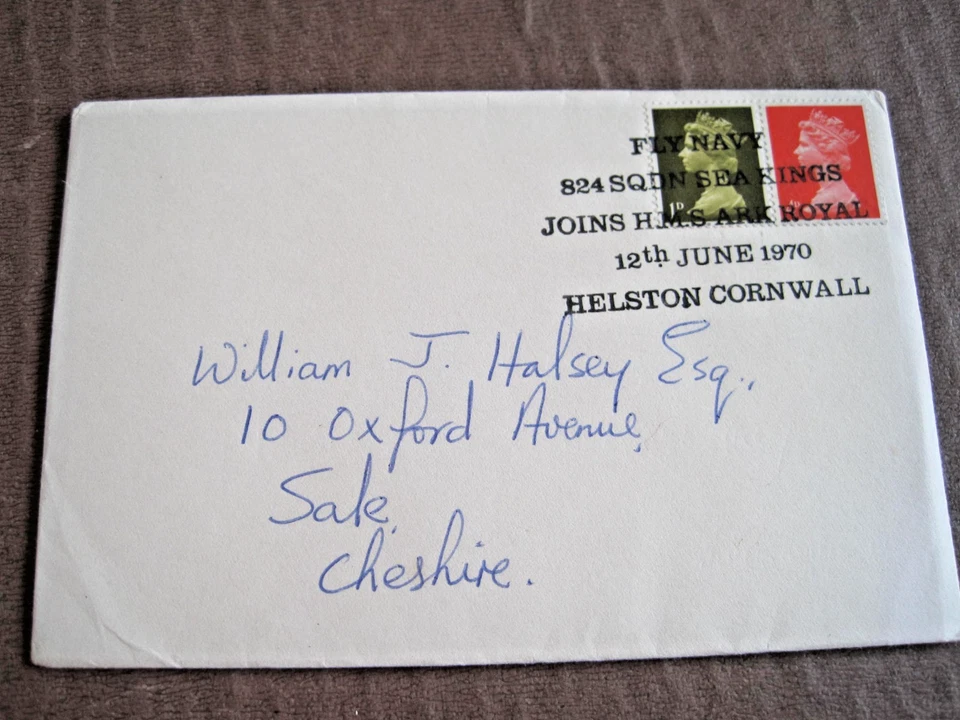 FLY NAVY
824 SQDN SEA KINGS
JOINS H.M.S ARK ROYAL
12th JUNE 1970
HELSTON CORNWALL
1D
4D
William J. Halsey Esq.,
10 Oxford Avenue,
Sale,
Cheshire.